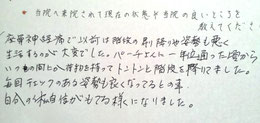 当院へ来院されて現在の状態や当院の良いところを
教えてください
坐骨神経痛で以前は階段の昇り降りや姿勢も悪く
生活するのが大変でした。パーチさんに一年位通った頃から
いつの間にか荷物を持ってトントンと階段を降りてました。
毎回チェックのある姿勢も良くなってるとの事
自分が私自信がもてる様になりました。